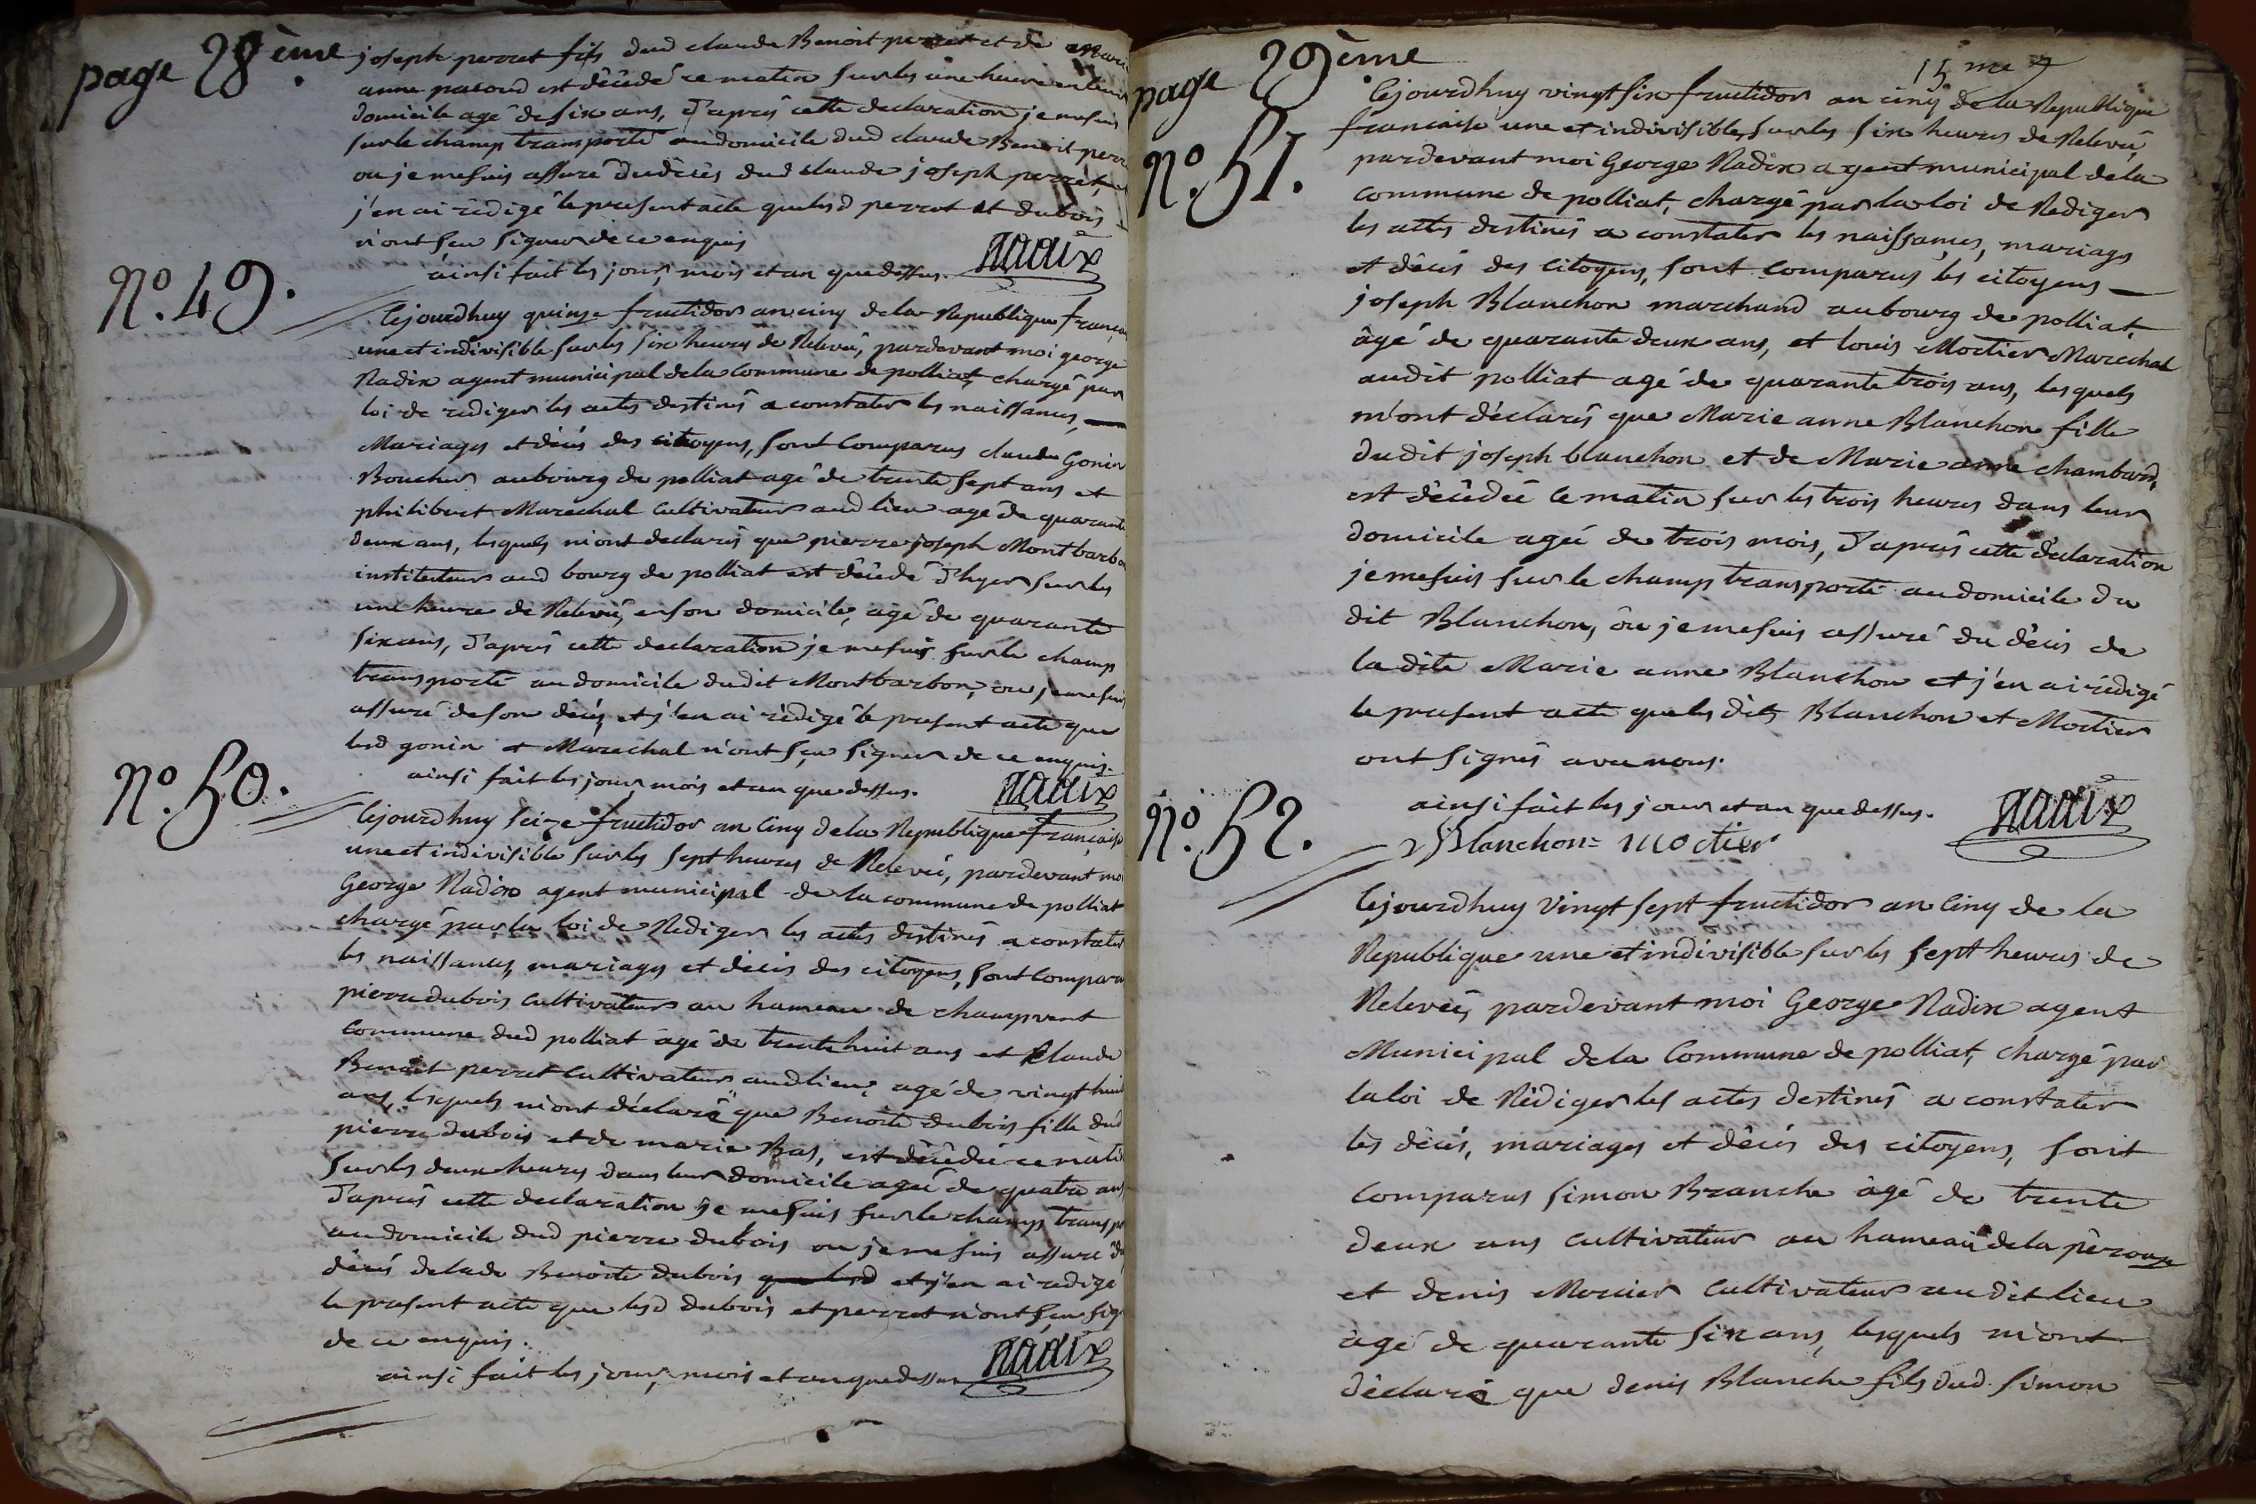 page 28ème
joseph perret fils dud claude Benoit perret et de marie
anne pacoud est dêcêdé ce matin sur les une heure en leur
domicile agé de six ans, D'aprés cette declaration je me suis
sur le champ transporté au domicile dud claude Benoit perr
ou je me suis assuré du dêcés dud claude joseph perret, et
j'en ai rèdigé le present acte que lesd perret et dubois
n'ont sçu signer de ce enquis
ainsi fait les jour, mois et an que dessus. Nadix
No. 49.
Cejourdhuy quinze fructidor an cinq de la Republique françai
une et indivisible sur les six heures de Relevée, pardevant moi george
Nadix agent municipal de la commune de polliat, chargé par
loi de rediger les actes destinés a constater les naissances,
Mariages et décés des citoyens, sont Comparus claude Gonin
Boucher au bourg de polliat agé de trente sept ans et
philibert Marechal Cultivateur aud lieu agé de quarante
deux ans, lesquels m'ont declarés que pierre joseph Montbarbo
instituteur aud bourg de polliat est dêcêdé d'hyer sur les
une heure de Relevée, en son domicile, agé de quarante
six ans, D'aprés cette declaration je me suis sur le champ
transporté au domicile dudit Montbarbon, ou je me suis
assuré de son dêcés, et j'en ai rèdigé le present acte que
lesd gonin et Marechal n'ont sçu signer de ce enquis.
ainsi fait les jour, mois et an que dessus. Nadix
No. 50.
Cejourdhuy seize fructidor an Cinq de la Republique française
une et indivisible sur les sept heures de Relevée, pardevant moi
George Nadix agent municipal de la commune de polliat
chargé par la loi de Rediger les actes destinés a constater
les naissances, mariages et dêcés des citoyens, sont Comparu
pierre dubois Cultivateur au hameau de champvent
Commune dud polliat agé de trente huit ans et Claude
Benoit perret Cultivateur aud lieu, agé de vingt huit
ans, lesquels m'ont déclaré que Benoite dubois fille dud
pierre dubois et de marie Bas, est dêcêdée ce mati
sur les deux heures dans leur domicile agée de quatre ans
D'aprés cette declaration je me suis sur le champ transpo
au domicile dud pierre dubois ou je me suis assuré du
dêcés de lade Benoite dubois que lesd et j'en ai redigé
le present acte que lesd dubois et perret n'ont sçu sig
de ce enquis.
ainsi fait les jour, mois et an que dessus Nadix
page 29ème
15me
No. 51.
Cejourdhuy vingt six fructidor an cinq de la Republique
francaise une et indivisible, sur les six heures de Relevée,
pardevant moi George Nadix agent municipal de la
Commune de polliat, chargé par la loi de Rediger
les actes destinés a constater les naissances, mariages
et dêcés des citoyens, sont comparus les citoyens
joseph Blanchon marchand au bourg de polliat,
âgé de quarante deux ans, et louis Moctier Marechal
audit polliat agé de quarante trois ans, lesquels
m'ont déclarés que Marie anne Blanchon fille
dudit joseph blanchon et de Marie anne chambard,
est dêcêdée ce matin sur les trois heures dans leur
domicile agée de trois mois, D'aprés cette déclaration
je me suis sur le champ transporté au domicile du
dit Blanchon, ôu je me suis assuré du dêcés de
la dite Marie anne Blanchon et j'en ai rédigé
le present acte que les dits Blanchon et Moctier
ont signés avec nous.
ainsi fait les jour et an que dessus. Nadix
Blanchon = moctier
No. 52.
Cejourdhuy vingt sept fructidor an Cinq de la
Republique une et indivisible sur les sept heures de
Relevée, pardevant moi George Nadix agent
Municipal de la Commune de polliat, chargé par
la loi de Rédiger les actes destinés a constater
les dêcés, mariages et dêcés des citoyens, sont
Comparus simon Branche âgé de trente
deux ans cultivateur au hameau de la pèrouze
et denis Mercier Cultivateur au dit lieu
agé de quarante six ans, lesquels m'ont
déclaré que denis Blanche fils dud simon